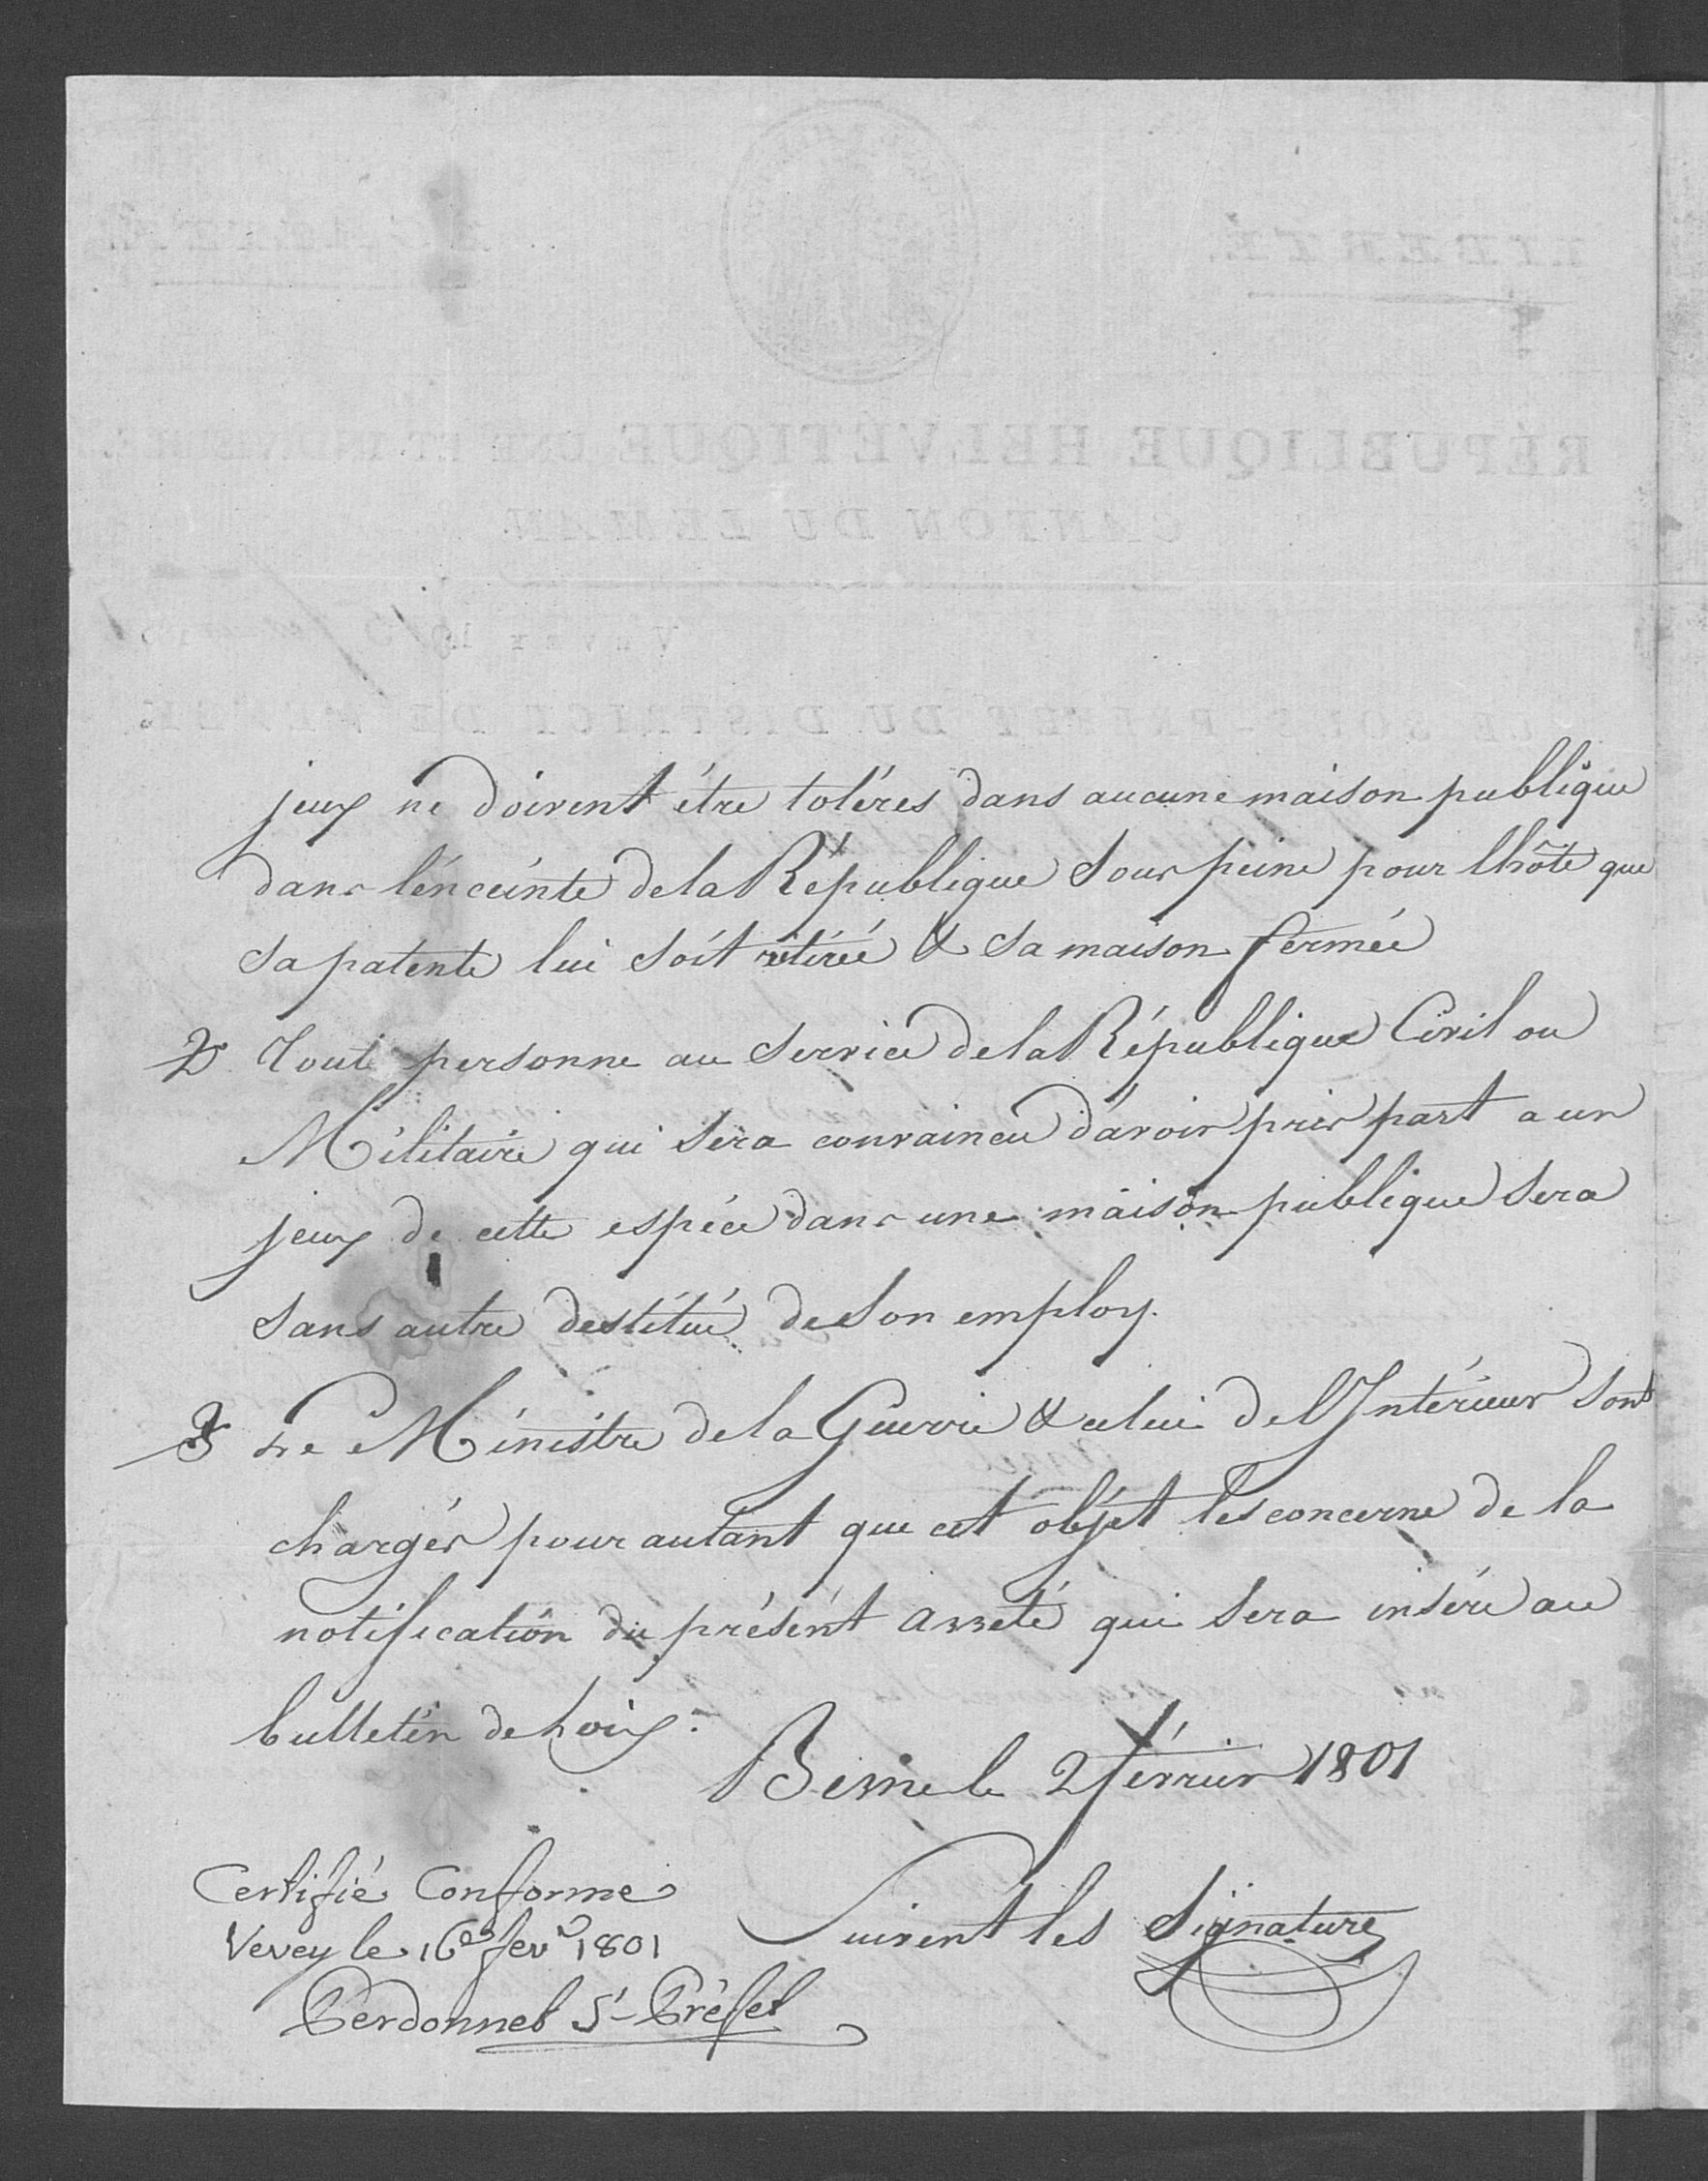 jeux ne doivent être tolérés dans aucune maison publique
dans l'énceinte de la République sous peine pour lhôte que
sa patente lui soit rétirée & sa maison fermée
2 Toute personne au service de la République Civil ou
Militaire qui sera convaincu d'avoir pris part a un
jeux de cette espéce dans une maison publique sera
sans autre destitué de son employ.
3 Le Ministre de la Guerre & celui de l'Intérieur sont
chargés pour autant que cet objet les concerne de la
notification du présent arreté qui sera inséré au
bulletin de Loix.
Berne le 2 février 1801
Suivent les Signatures
Certifié Conforme
Vevey le 16e fevr 1801
Perdonnet St-Préfet